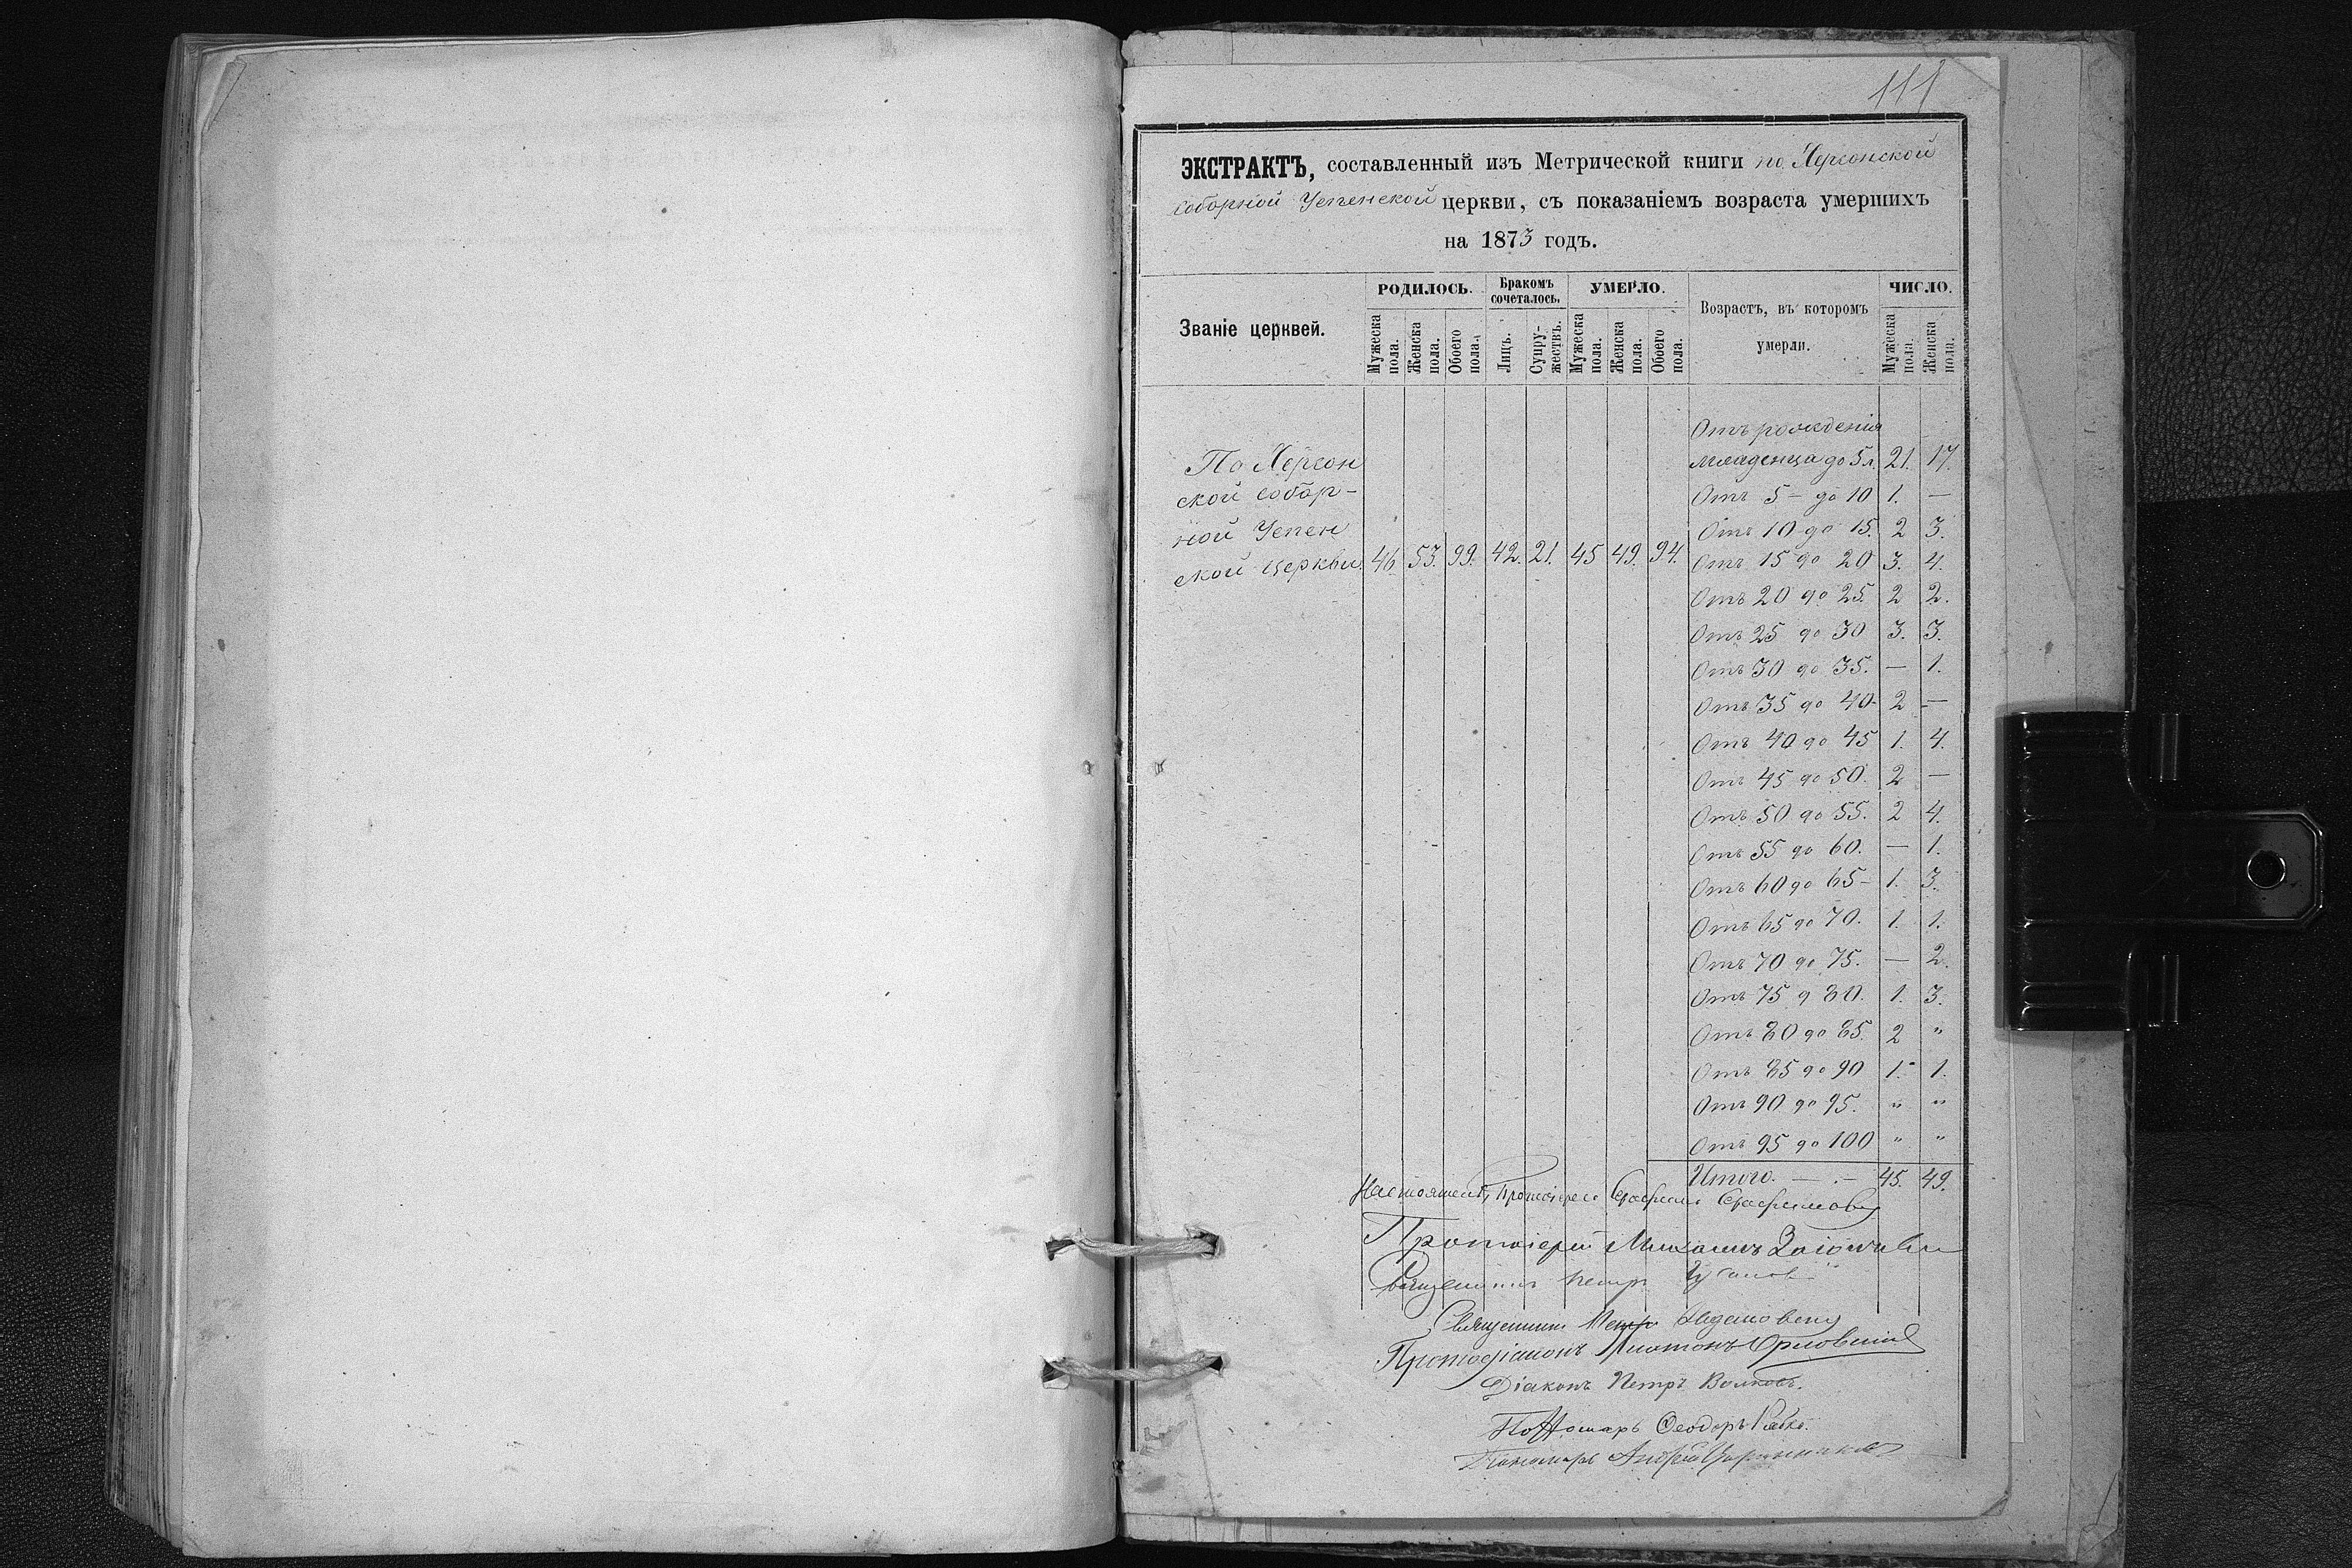 111
ЭКСТРАКТЪ, составленный изъ Метрической книги по Херсонской
соборной Успенской церкви, съ показаніемъ возраста умершихъ
на 1873 годъ.
Званіе церквей.
РОДИЛОСЬ.
Бракомъ сочеталось.
УМЕРЛО.
Возрастъ, въ которомъ умерли.
ЧИСЛО.
Мужеска пола.
Женска пола.
Обоего пола.
Лицъ.
Супружествъ.
Мужеска пола.
Женска пола.
Обоего пола.
Мужеска пола.
Женска пола.
По Херсон
ской собор-
ной Успен
ской церкви. 46. 53. 99. 42. 21. 45 49. 94.
Отъ рожденія
младенца до 5 л. 21. 17.
Отъ 5 – до 10 1. —
Отъ 10 до 15. 2 3.
Отъ 15 до 20 3. 4.
Отъ 20 до 25. 2 2.
Отъ 25 до 30 3. 3.
Отъ 30 до 35. — 1.
Отъ 35 до 40- 2 —
Отъ 40 до 45 1. 4.
Отъ 45 до 50. 2 —
Отъ 50 до 55. 2 4.
Отъ 55 до 60. — 1.
Отъ 60 до 65– 1. 3.
Отъ 65 до 70. 1. 1.
Отъ 70 до 75. — 2.
Отъ 75 д 80. 1. 3.
Отъ 80 до 85. 2 "
Отъ 85 до 90 1. 1.
Отъ 90 до 95. " "
Отъ 95 до 100 " "
Итого. — . — 45. 49.
Протоіерей Михаилъ
Священникъ Петръ
Священникъ Петръ
Протодіаконъ Орловскій
Діаконъ Петръ Волковъ.
Ѳеодоръ
Пономарь Андрей